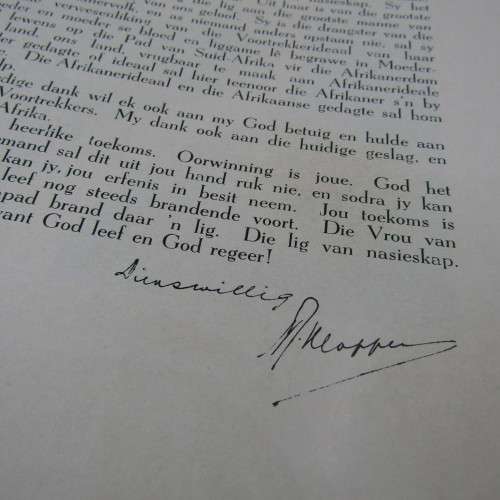 nasieskap. Sy het
Uit haar is die grootste
aan die grootste manne van
voortrekkervolk, en as ons geheel. Sy is die draagster van die
die verwesenliking van die Voortrekkerideaal van haar
vader en moeder se bloed en liggame lê begrawe in Moeder-
lewens op die Pad van Suid-Afrika vir die Afrikanerdom
land, ons land, vrugbaar te maak aan Afrikanerideale
gedagte of ideaal sal hier teenoor die Afrikaner s'n by
Die Afrikanerideaal en die Afrikaanse gedagte sal hom
dige dank wil ek ook aan my God betuig en hulde aan
Voortrekkers. My dank ook aan die huidige geslag, en
Afrika.
heerlike toekoms. Oorwinning is joue. God het
mand sal dit uit jou hand ruk nie, en sodra jy kan
kan jy, jou erfenis in besit neem. Jou toekoms is
leef nog steeds brandende voort. Die Vrou van
pad brand daar 'n lig. Die lig van nasieskap.
want God leef en God regeer!
Dienswillig
Kloppers